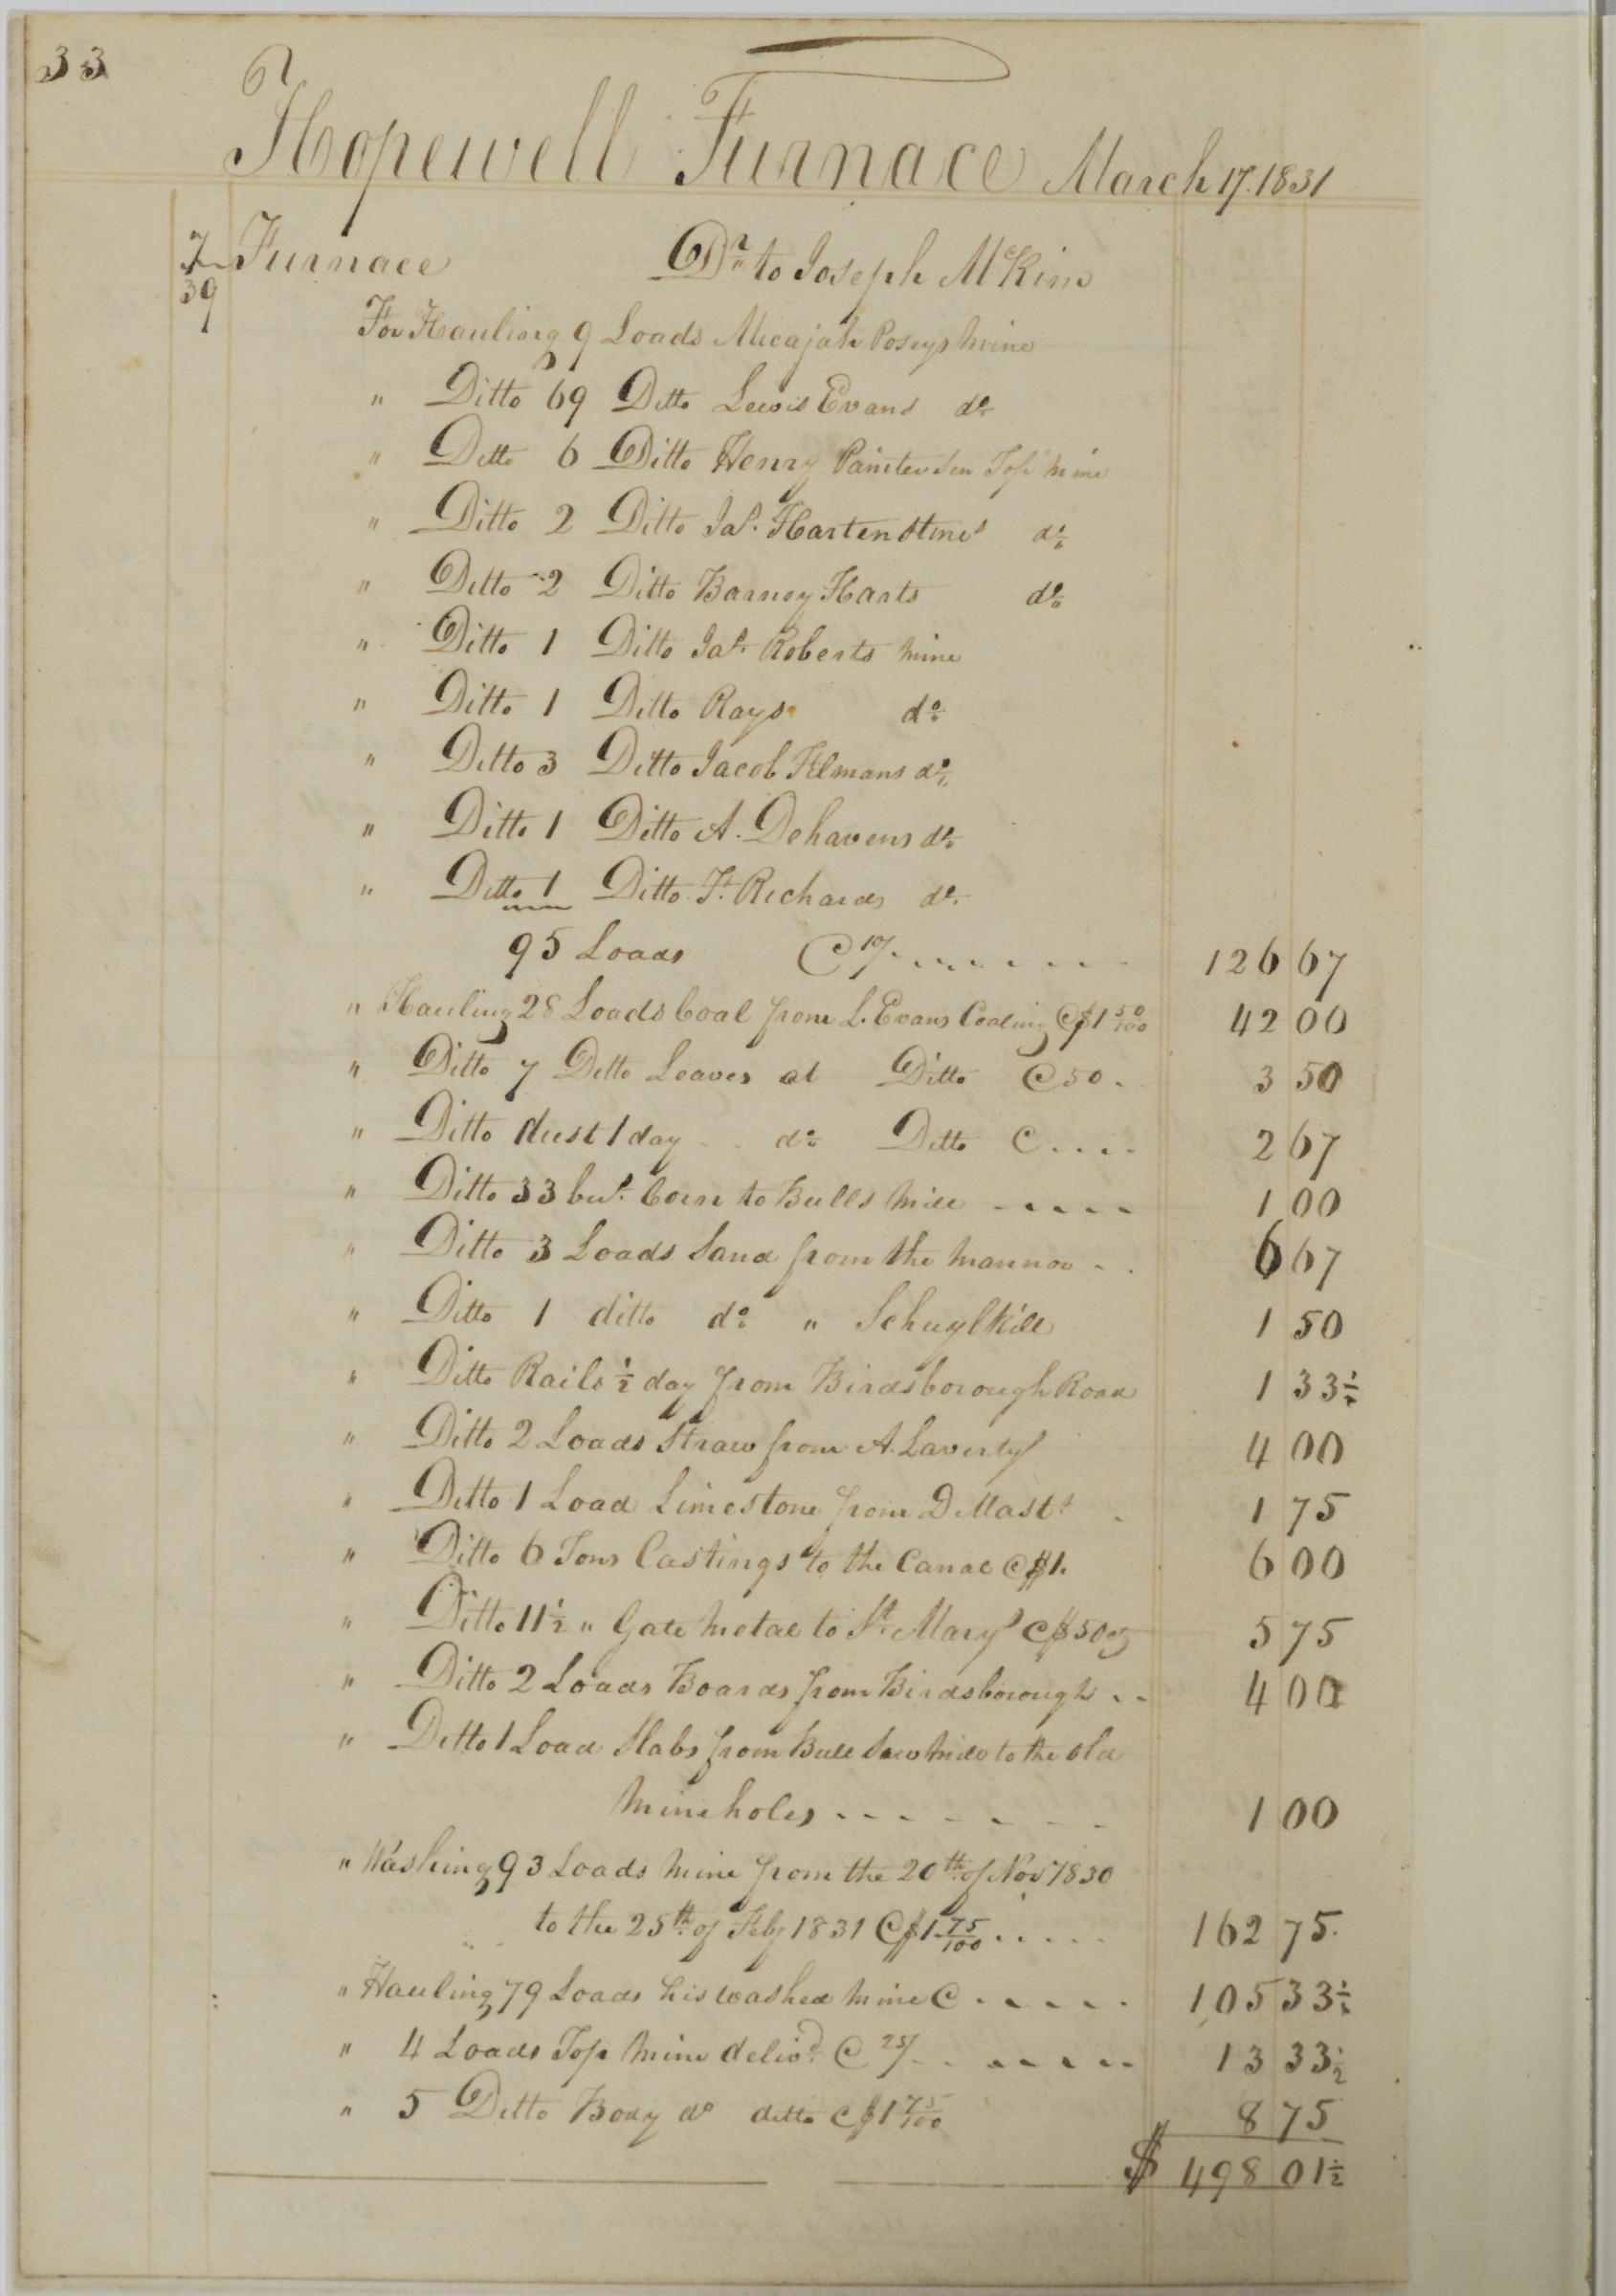 33
Hopewell Furnace March 17. 1831
7 Furnace Dr. to Joseph McKim
39
For Hauling 9 Loads Micajah Poseys mine
" Ditto 69 Ditto Lewis Evans do.
" Ditto 6 Ditto Henry Painter Sen Top mine
" Ditto 2 Ditto Jas. Hartenstines do.
" Ditto 2 Ditto Barney Harts do.
" Ditto 1 Ditto Jas. Roberts mine
" Ditto 1 Ditto Rays do.
" Ditto 3 Ditto Jacob Filmans do.
" Ditto 1 Ditto A. Dehavens do.
" Ditto 1 Ditto F. Richards do.
95 Loads @ 10/ 126 67
" Hauling 28 Loads Coal from L. Evans Coaling @ $1 50/100 42 00
" Ditto 7 Ditto Leaves at Ditto @ 50 3 50
" Ditto dust 1 day do. Ditto @ 2 67
" Ditto 33 bus. Corn to Bulls Mill 1 00
" Ditto 3 Loads Sand from the Mannor 6 67
" Ditto 1 ditto do. " Schuylkill 1 50
" Ditto Rails 1/2 day from Birdsborough Road 1 33 1/2
" Ditto 2 Loads Straw from A. Lavertys 4 00
" Ditto 1 Load Limestone from D Masts 1 75
" Ditto 6 Tons Castings to the Canal @ $1. 6 00
" Ditto 11 1/2 " Gate metal to St. Marys @ $50 5 75
" Ditto 2 Loads Boards from Birdsborough 4 00
" Ditto 1 Load Slabs from Bull Saw Mill to the old
Mine holes 1 00
" Washing 93 Loads Mine from the 20th of Nov 1830
to the 25th of Feby 1831 @ $1 75/100 162 75
" Hauling 79 Loads his washed Mine @ 105 33 1/2
" 4 Loads Top Mine delivd. @ 25/ 13 33 1/2
" 5 Ditto Body do ditto @ $1 75/100 8 75
$ 498 01 1/2